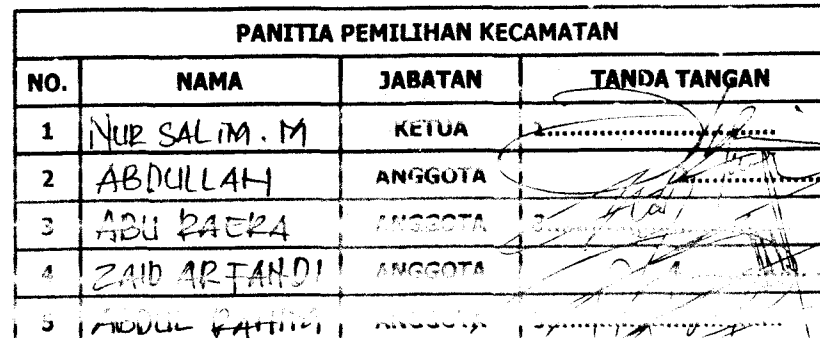 PANITIA PEMILIHAN KECAMATAN
NO. NAMA JABATAN TANDA TANGAN
1 NUR SALIM. M KETUA 1..............................
2 ABDULLAH ANGGOTA
3 ABU RAERA ANGGOTA 3..............................
4 ZAID ARFANDI ANGGOTA
5 ABDUL RAHIM ANGGOTA 5..............................